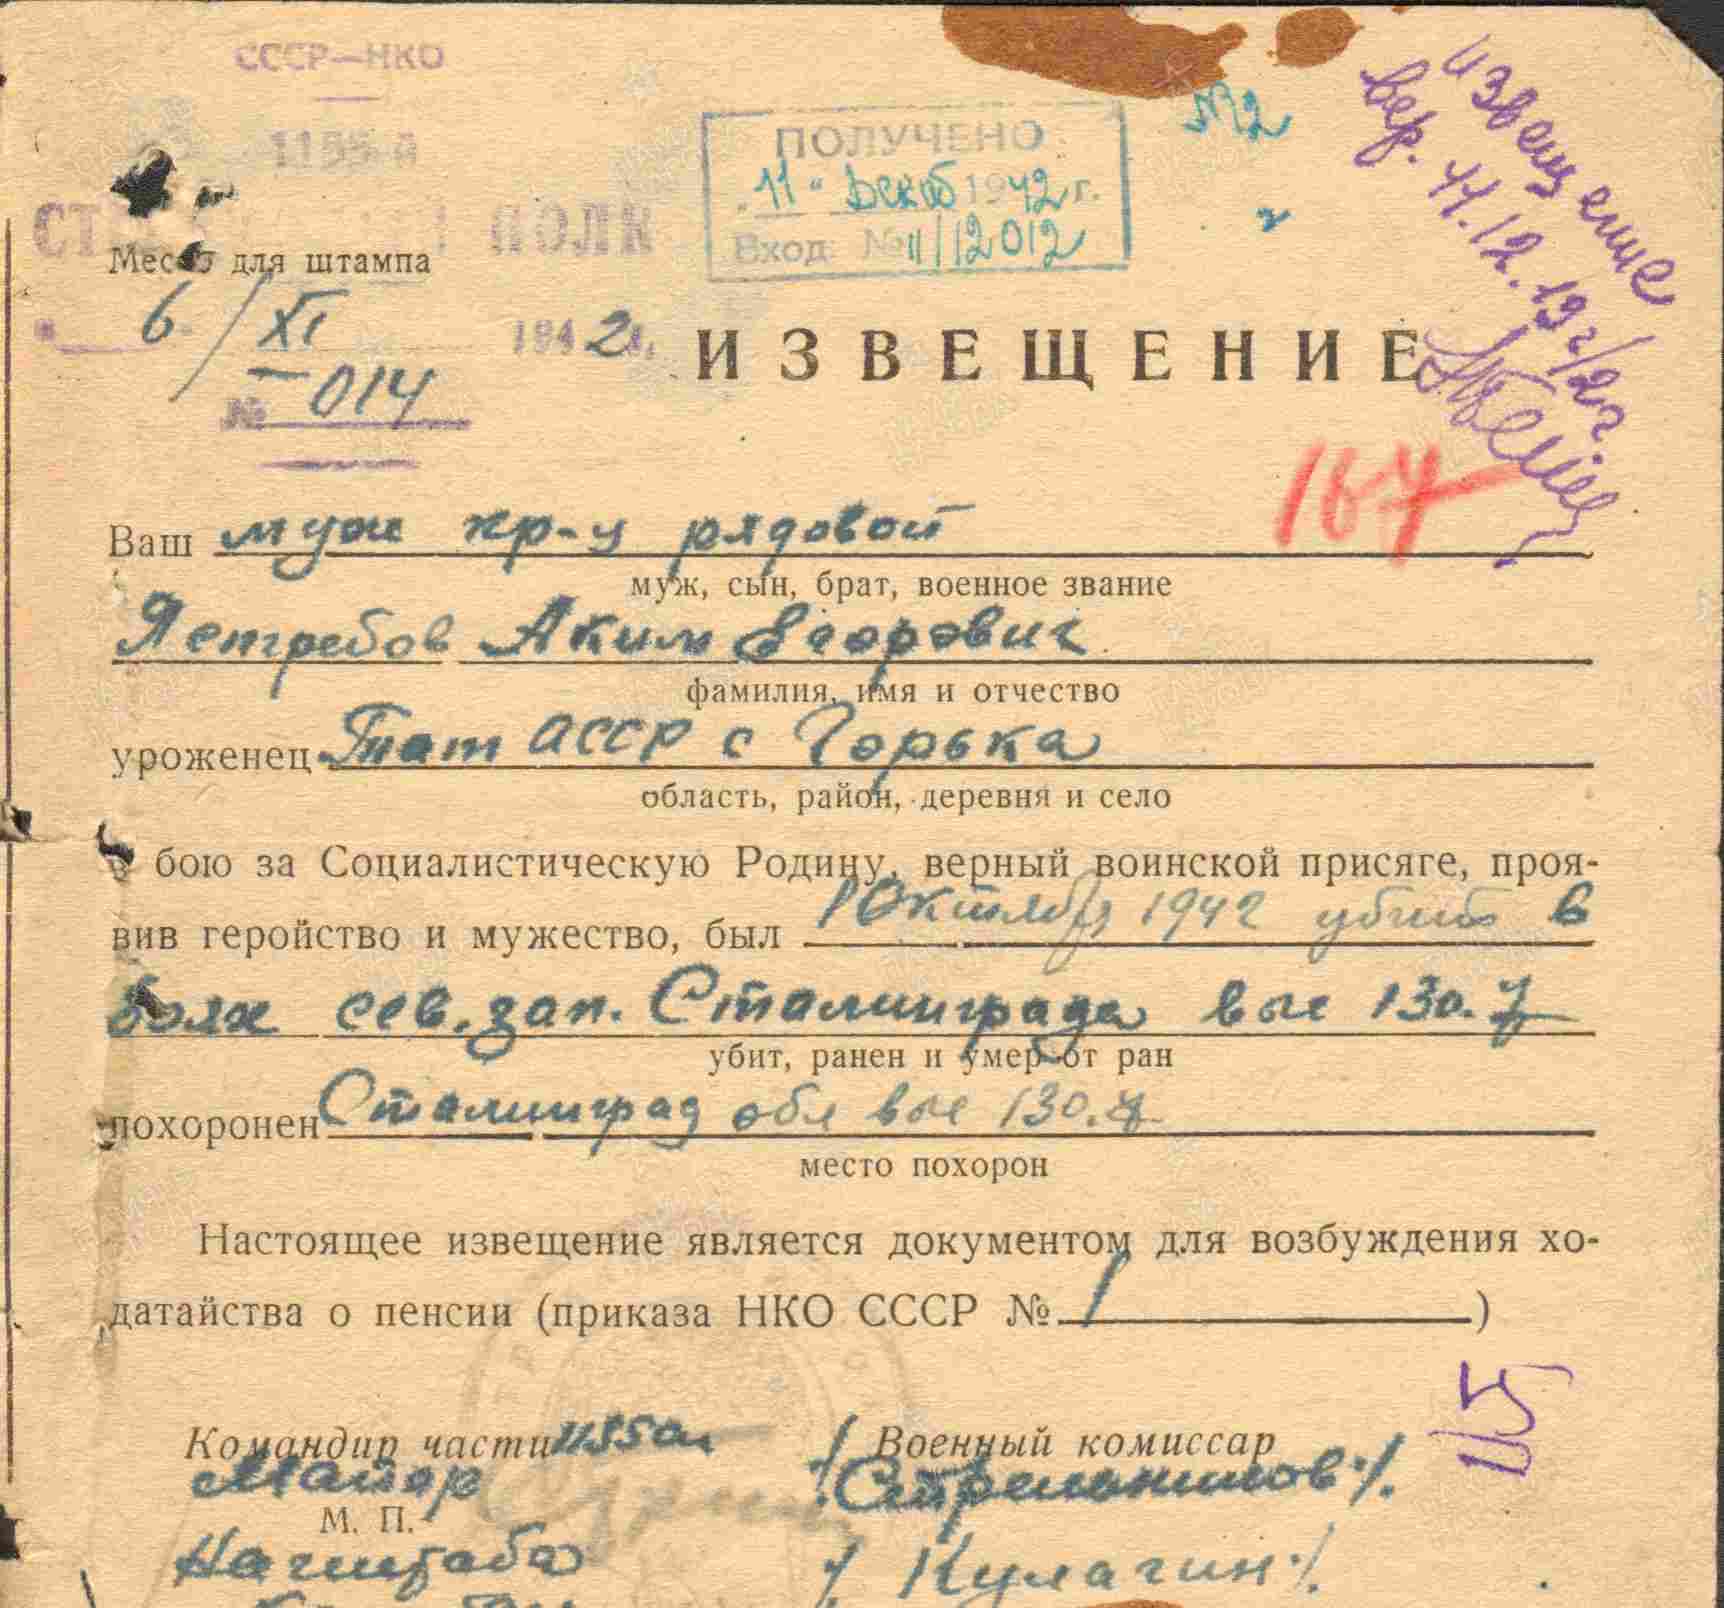 СССР—НКО
1155-й
ПОЛК
Место для штампа
6/XI 1942г.
№ 014
ПОЛУЧЕНО
"11" Декаб 1942г.
Вход №11/12012
№2
2
извещение
вер. 11.12.19г/2г.
ИЗВЕЩЕНИЕ
164
Ваш муж кр-ц рядовой
муж, сын, брат, военное звание
Ястребов Аким Егорович
фамилия, имя и отчество
уроженец Тат АССР с Горька
область, район, деревня и село
бою за Социалистическую Родину, верный воинской присяге, проя-
вив геройство и мужество, был 1 Октября 1942 убит в
боях сев. зап. Сталинграда выс 130.7
убит, ранен и умер от ран
похоронен Сталинград обл выс 130.7
место похорон
Настоящее извещение является документом для возбуждения хо-
датайства о пенсии (приказа НКО СССР № )
Командир части 1155сп
Военный комиссар
Майор
/Стрельников/.
М. П.
Начштаба
/Кулагин/.